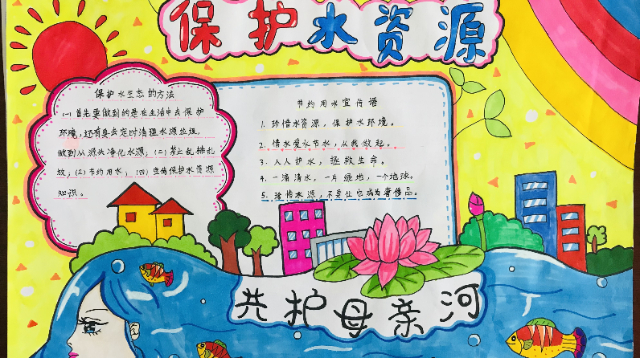 保护水资源
保护水生态的方法
(一)首先要做到的是在生活中去保护
环境,还有要去定时清理水源垃圾,
做到从源头净化水源,(二)禁止乱排乱
放,(三)节约用水,(四)宣传保护水资源
知识。
节约用水宣传语
1.珍惜水资源,保护水环境。
2.情水爱水节水,从我做起。
3.人人护水,拯救生命。
4.一滴清水,一片绿地,一个地球。
5.珍惜水源,不要让它成为奢侈品。
共护母亲河